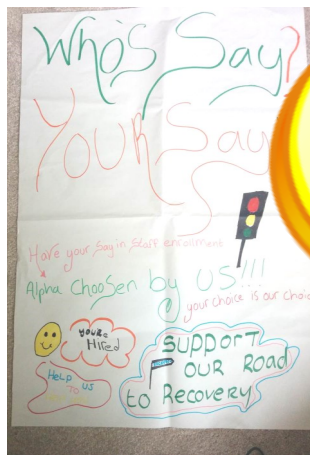 Who's Say?
Your Say
Have your say in staff enrollment
Alpha Choosen by US!!!
your choice is our choic
YOURE
HIRED
SUPPORT
OUR ROAD
to Recovery
HELP
US
TO